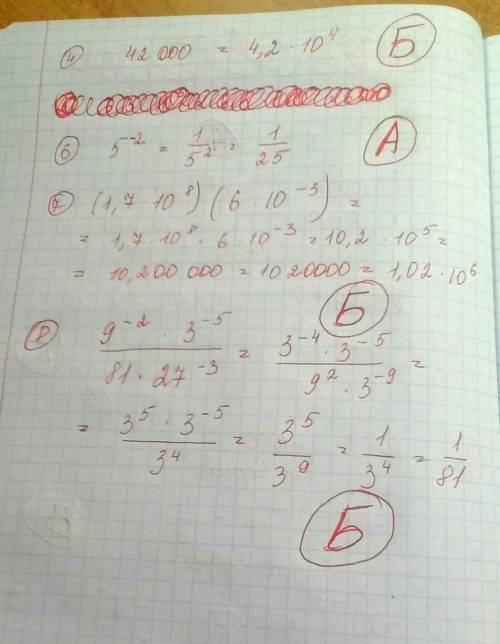 ④ 42 000 = 4,2 · 10⁴ Б
⑥ 5⁻² = 1/5² = 1/25 А
⑦ (1,7 · 10⁸) (6 · 10⁻³) =
= 1,7 · 10⁸ · 6 · 10⁻³ = 10,2 · 10⁵ =
= 10,200 000 = 1020000 = 1,02 · 10⁶
Б
⑧ (9⁻² · 3⁻⁵)/(81 · 27⁻³) = (3⁻⁴ · 3⁻⁵)/(9² · 3⁻⁹) =
= (3⁵ · 3⁻⁵)/3⁴ = 3⁵/3⁹ = 1/3⁴ = 1/81
Б